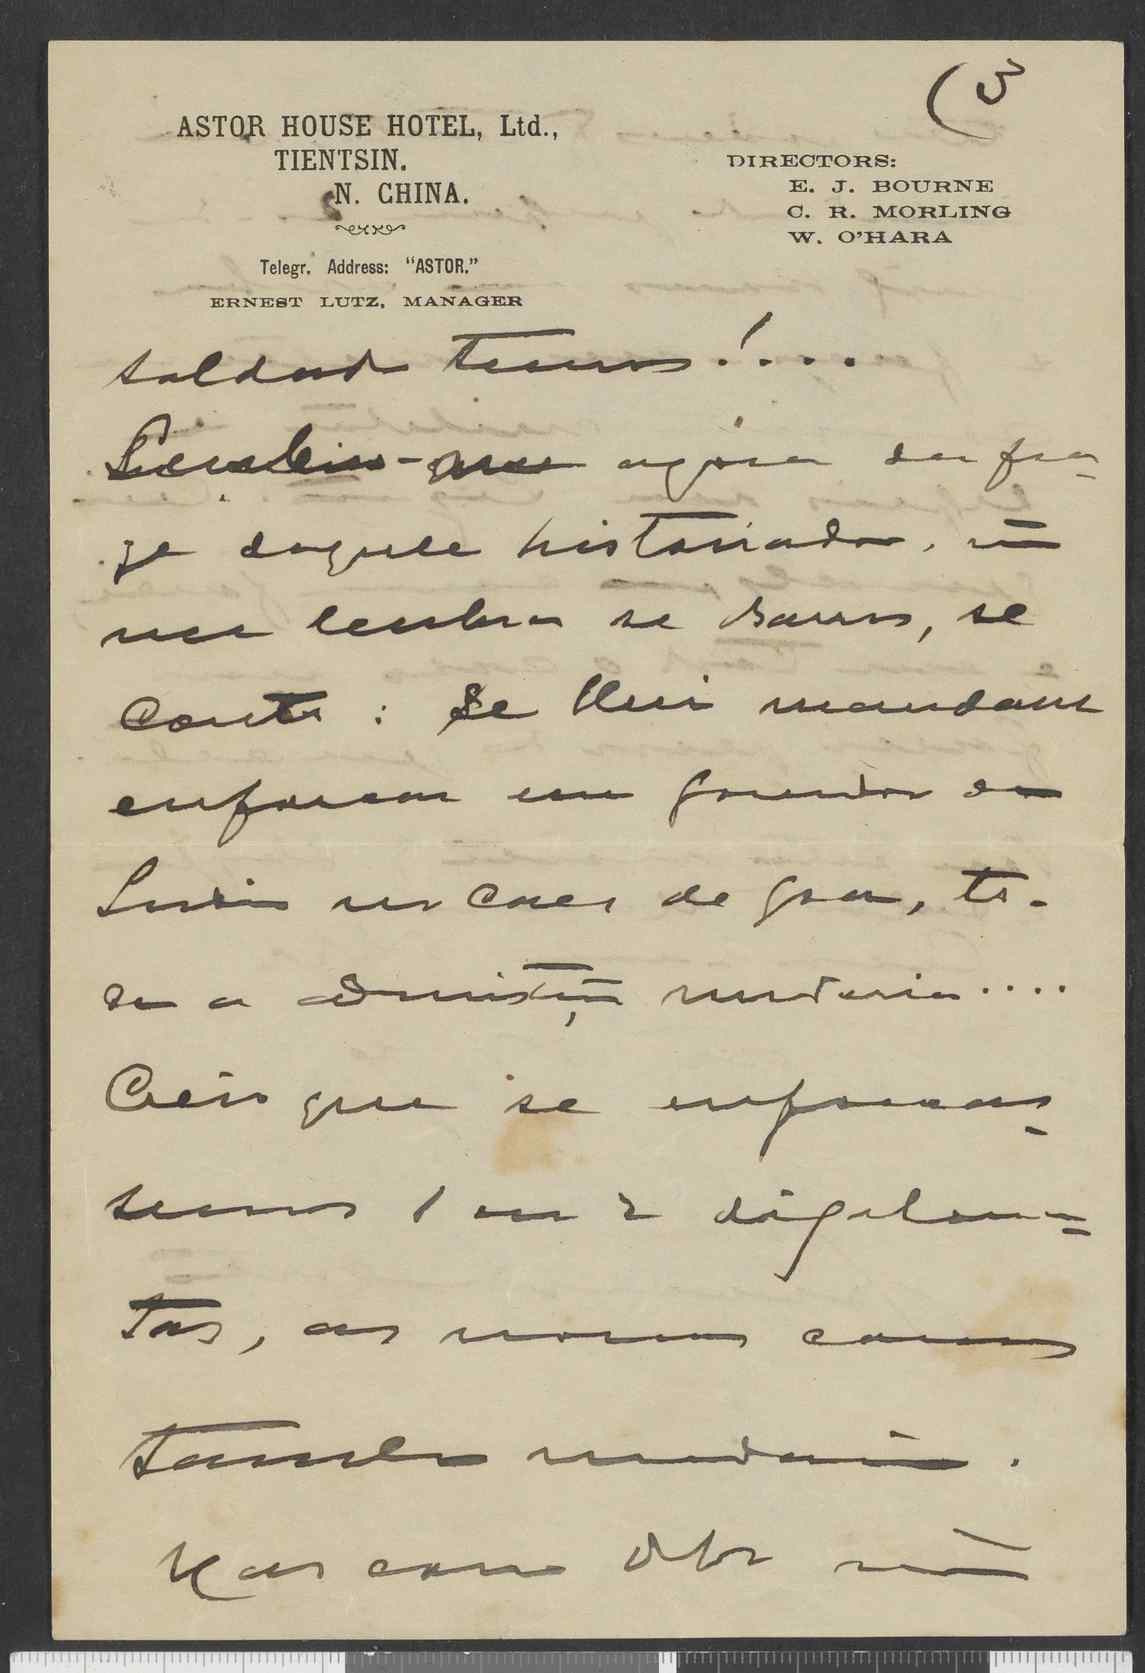 (3
ASTOR HOUSE HOTEL, Ltd.,
TIENTSIN.
N. CHINA.
Telegr. Address: "ASTOR."
ERNEST LUTZ, MANAGER
DIRECTORS:
E. J. BOURNE
C. R. MORLING
W. O'HARA
soldado temos!....
Lembro-me agora da fra-
ze daquele historiador, nã
me lembra se Barros, se
Couto: Se El Rei mandar
enforcar um Governador da
India no caes de Goa, to-
da a administração mudaria....
Creio que se enforcas-
semos 1 ou 2 diploma-
tas, as nossas cousas
tambem mudariam.
Mas como não